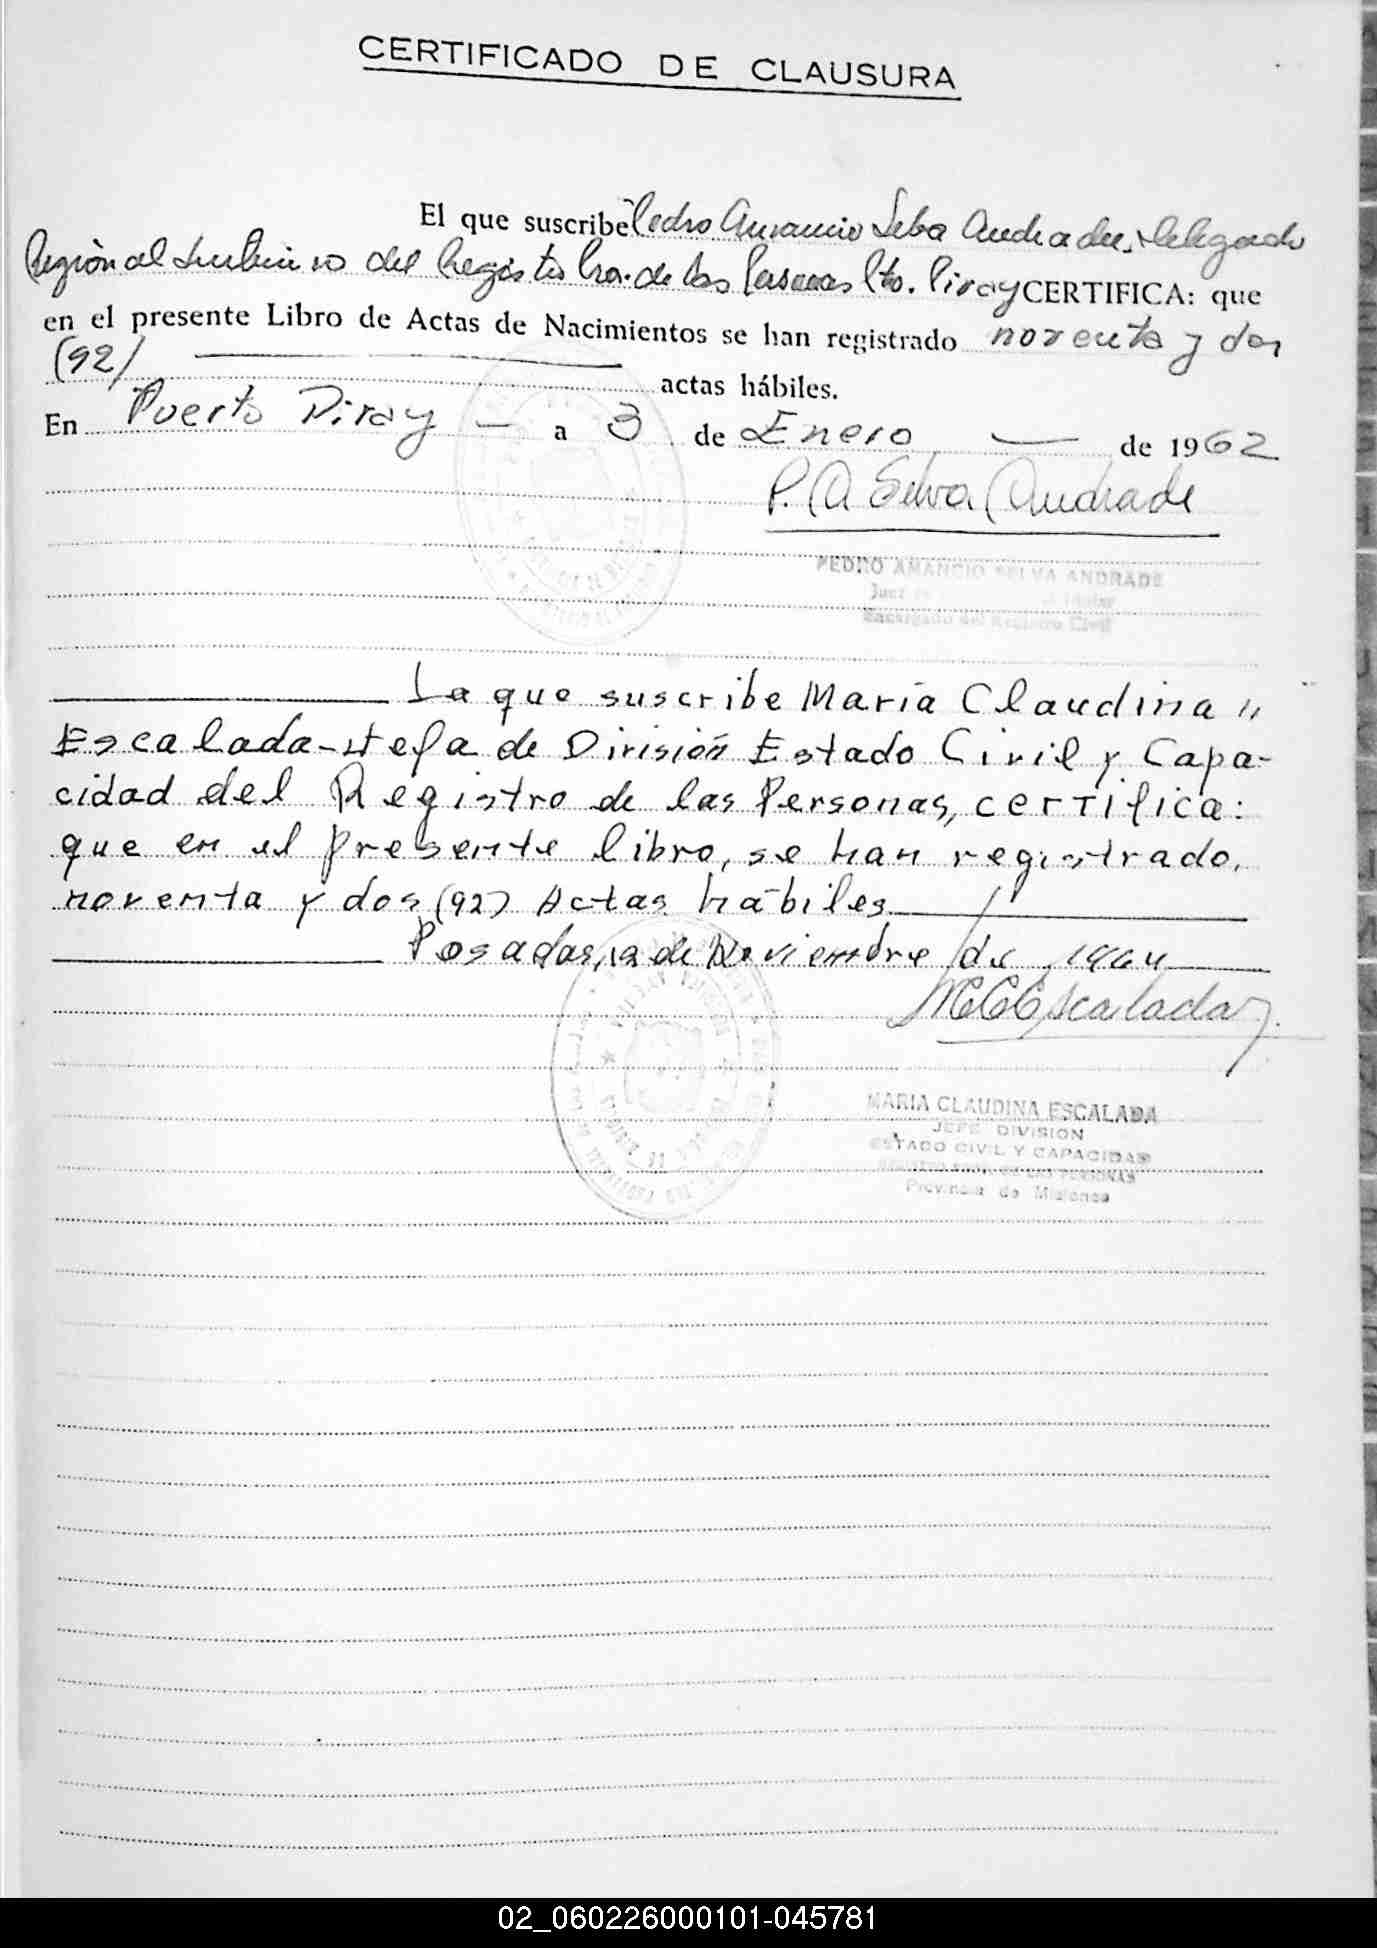 CERTIFICADO DE CLAUSURA
El que suscribe Pedro Amancio Selva Andrade, Delegado
Regional del Registro Pro. de las Personas Pto. Piray CERTIFICA: que
en el presente Libro de Actas de Nacimientos se han registrado noventa y dos
(92) actas hábiles.
En Puerto Piray — a 3 de Enero — de 1962
P. A Selva Andrade
PEDRO AMANCIO SELVA ANDRADE
Juez
Encargado del Registro Civil
La que suscribe María Claudina "
Escalada-Jefa de División Estado Civil y Capa-
cidad del Registro de las Personas, certifica:
que en el presente libro, se han registrado,
noventa y dos (92) Actas hábiles
Posadas, 12 de Noviembre de 1964
M C Escalada
MARIA CLAUDINA ESCALADA
JEFE DIVISION
ESTADO CIVIL Y CAPACIDAD
REGISTRO PROV. DE LAS PERSONAS
Provincia de Misiones
02_060226000101-045781